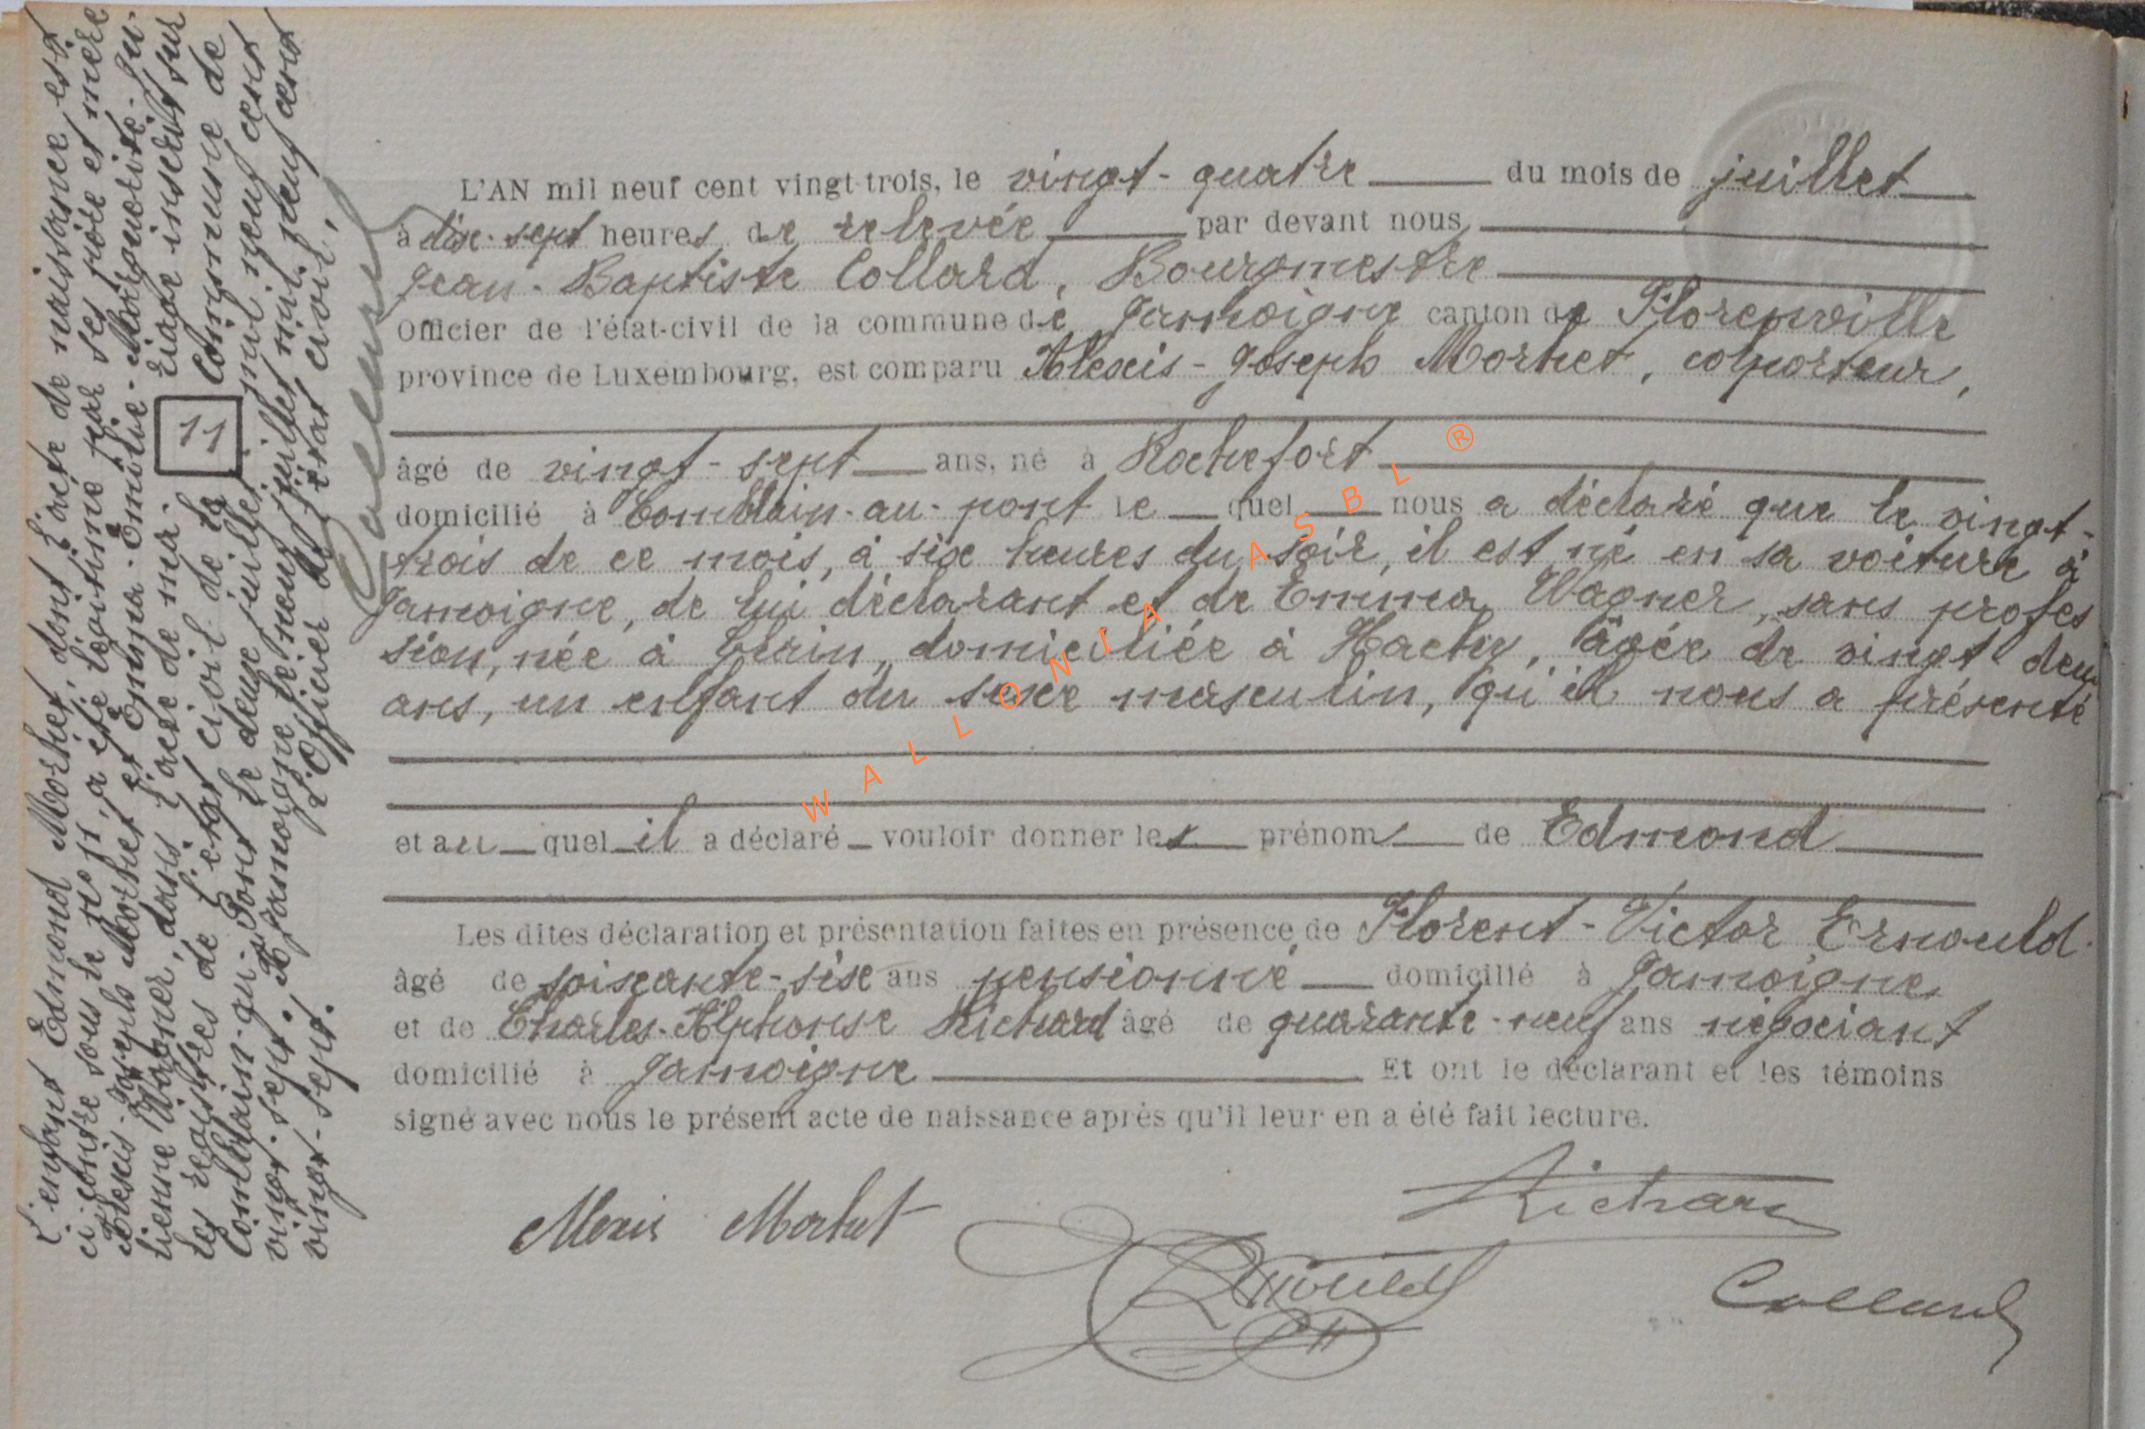 L'AN mil neuf cent vingt-trois, le vingt-quatre du mois de juillet
à dix-sept heures de relevée par devant nous
Jean-Baptiste Collard, Bourgmestre
Officier de l'état-civil de la commune de Jamoigne canton de Florenville
province de Luxembourg, est comparu Alexis-Joseph Morhet, colporteur,
âgé de vingt-sept ans, né à Rochefort
domicilié à Comblain-au-pont le quel nous a déclaré que le vingt-
trois de ce mois, à six heures du soir, il est né en sa voiture à
Jamoigne, de lui déclarant et de Emma Wagner, sans profes
sion, née à domiciliée à Hachy, âgée de vingt deux
ans, un enfant du sexe masculin, qu'il nous a présenté
et au quel il a déclaré vouloir donner les prénoms de Edmond
Les dites déclaration et présentation faites en présence de Florent-Victor Ernould
âgé de soixante-six ans pensionné domicilié à Jamoigne
et de Charles-Alphonse Richard âgé de quarante-neuf ans négociant
domicilié à Jamoigne Et ont le déclarant et les témoins
signé avec nous le présent acte de naissance après qu'il leur en a été fait lecture.
Alexis Morhet
Richard
Ernould
Collard
11
L'enfant Edmond Morhet, dont l'acte de naissance est
ci contre sous le no 11, a été légitimé par ses père et mère
Alexis-Joseph Morhet et Emma-Emilie-Marguerite-Ju-
lienne Wagner, dans l'acte de mariage inscrit sur
les registres de l'état civil de la commune de
Comblain-au-Pont le deux juillet mil neuf cent
vingt-sept. A Jamoigne le neuf juillet mil neuf cent
vingt-sept. L'Officier de l'état civil,
WALLONIA ASBL ®